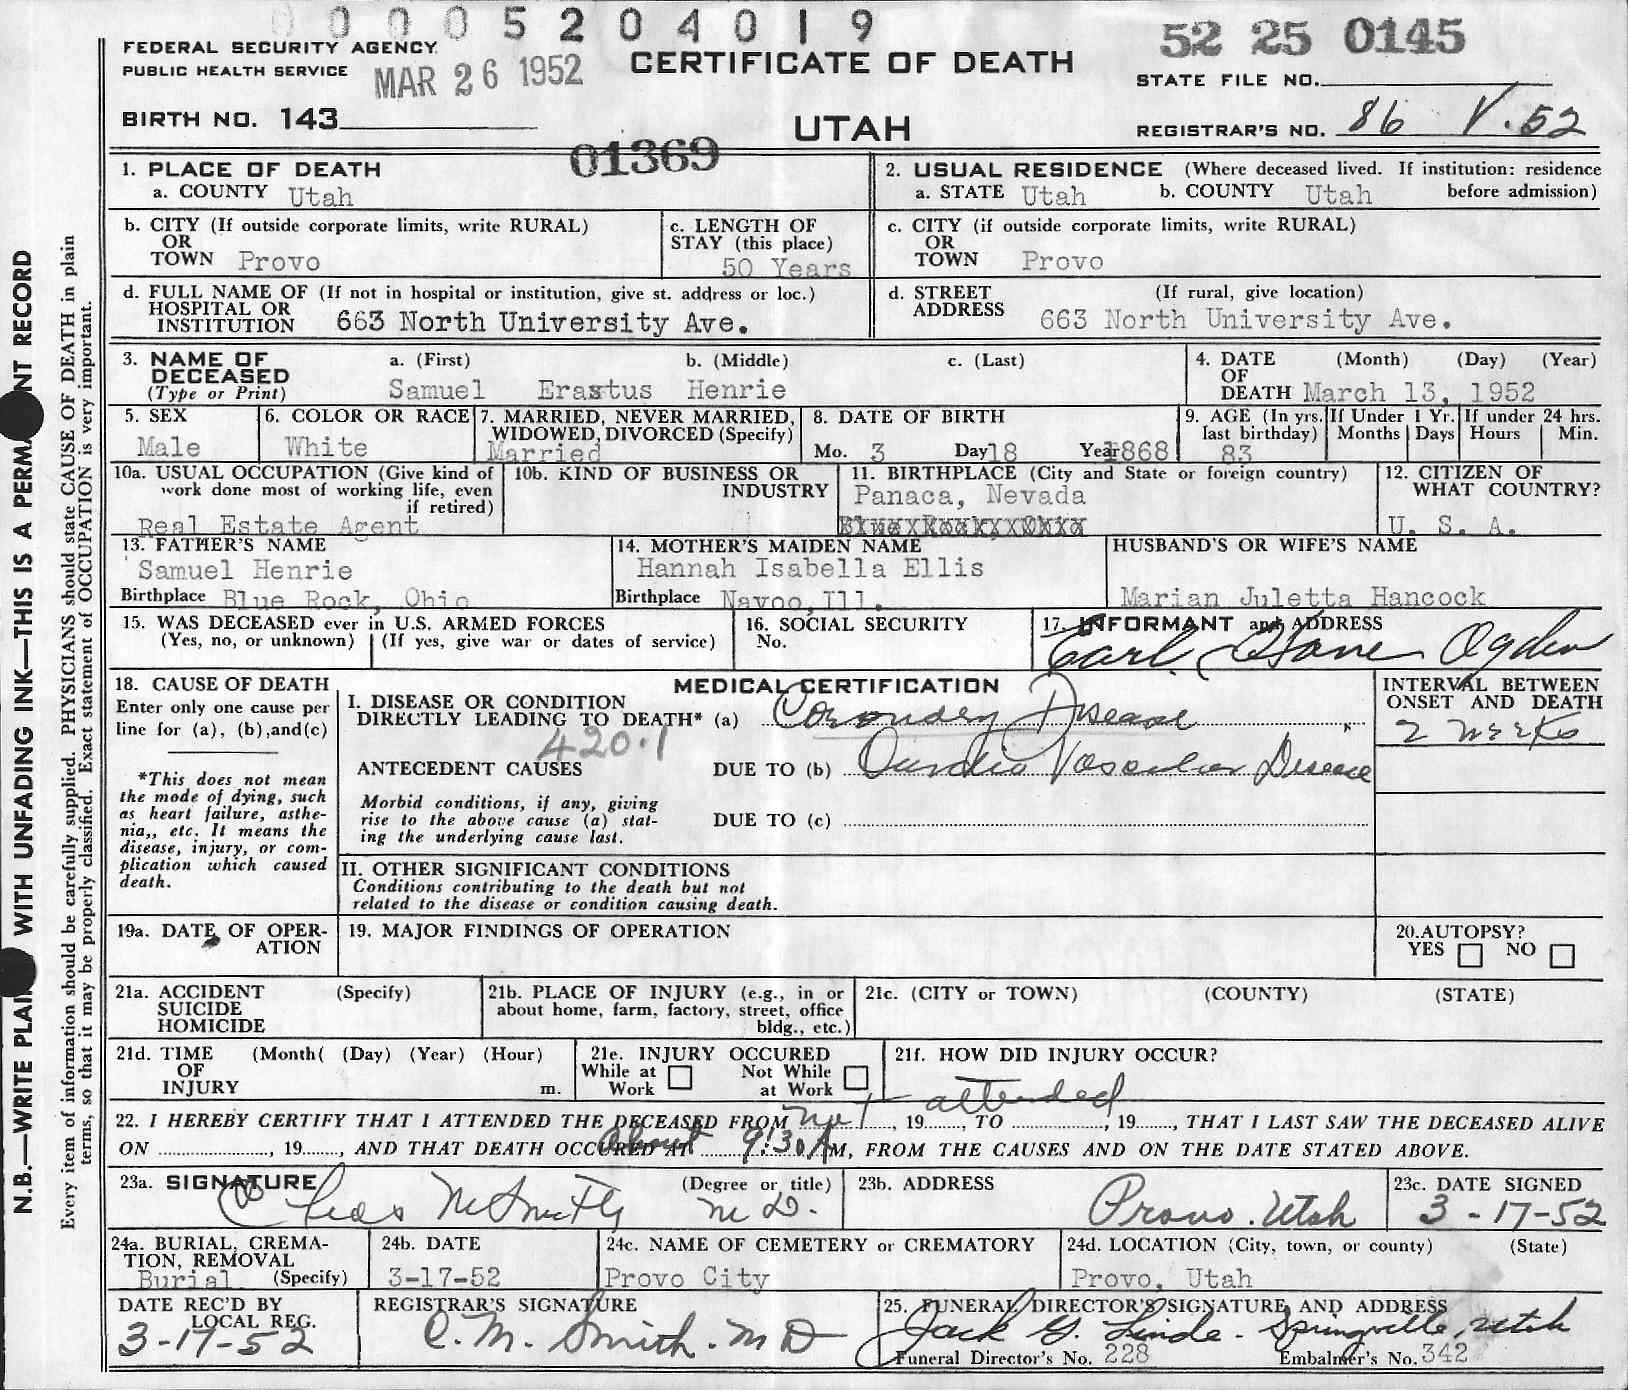 0 0 0 0 5 2 0 4 0 1 9
FEDERAL SECURITY AGENCY
PUBLIC HEALTH SERVICE
MAR 26 1952
CERTIFICATE OF DEATH
52 25 0145
STATE FILE NO.
BIRTH NO. 143
UTAH
REGISTRAR'S NO. 86 V. 52
01369
1. PLACE OF DEATH
a. COUNTY Utah
2. USUAL RESIDENCE (Where deceased lived. If institution: residence
a. STATE Utah b. COUNTY Utah before admission)
b. CITY (If outside corporate limits, write RURAL)
OR
TOWN Provo
c. LENGTH OF
STAY (this place)
50 Years
c. CITY (if outside corporate limits, write RURAL)
OR
TOWN Provo
d. FULL NAME OF (If not in hospital or institution, give st. address or loc.)
HOSPITAL OR
INSTITUTION 663 North University Ave.
d. STREET (If rural, give location)
ADDRESS 663 North University Ave.
3. NAME OF a. (First) b. (Middle) c. (Last)
DECEASED
(Type or Print) Samuel Erastus Henrie
4. DATE (Month) (Day) (Year)
OF
DEATH March 13, 1952
5. SEX
Male
6. COLOR OR RACE
White
7. MARRIED, NEVER MARRIED,
WIDOWED, DIVORCED (Specify)
Married
8. DATE OF BIRTH
Mo. 3 Day 18 Year 1868
9. AGE (In yrs.
last birthday)
83
If Under 1 Yr.
Months Days
If under 24 hrs.
Hours Min.
10a. USUAL OCCUPATION (Give kind of
work done most of working life, even
if retired)
Real Estate Agent
10b. KIND OF BUSINESS OR
INDUSTRY
11. BIRTHPLACE (City and State or foreign country)
Panaca, Nevada
12. CITIZEN OF
WHAT COUNTRY?
U. S. A.
13. FATHER'S NAME
Samuel Henrie
Birthplace Blue Rock, Ohio
14. MOTHER'S MAIDEN NAME
Hannah Isabella Ellis
Birthplace Navoo, Ill.
HUSBAND'S OR WIFE'S NAME
Marian Juletta Hancock
15. WAS DECEASED ever in U.S. ARMED FORCES
(Yes, no, or unknown) (If yes, give war or dates of service)
16. SOCIAL SECURITY
No.
17. INFORMANT and ADDRESS
Earl Ogden
18. CAUSE OF DEATH
Enter only one cause per
line for (a), (b),and(c)
*This does not mean
the mode of dying, such
as heart failure, asthe-
nia,, etc. It means the
disease, injury, or com-
plication which caused
death.
MEDICAL CERTIFICATION
I. DISEASE OR CONDITION
DIRECTLY LEADING TO DEATH* (a) Coronary Disease
420.1
ANTECEDENT CAUSES DUE TO (b) Cardio Vascular Disease
Morbid conditions, if any, giving
rise to the above cause (a) stat-
ing the underlying cause last.
DUE TO (c)
INTERVAL BETWEEN
ONSET AND DEATH
2 weeks
II. OTHER SIGNIFICANT CONDITIONS
Conditions contributing to the death but not
related to the disease or condition causing death.
19a. DATE OF OPER-
ATION
19. MAJOR FINDINGS OF OPERATION
20.AUTOPSY?
YES NO
21a. ACCIDENT (Specify)
SUICIDE
HOMICIDE
21b. PLACE OF INJURY (e.g., in or
about home, farm, factory, street, office
bldg., etc.)
21c. (CITY or TOWN) (COUNTY) (STATE)
21d. TIME (Month( (Day) (Year) (Hour)
OF
INJURY m.
21e. INJURY OCCURED
While at Not While
Work at Work
21f. HOW DID INJURY OCCUR?
22. I HEREBY CERTIFY THAT I ATTENDED THE DECEASED FROM not attended, 19......, TO ..............., 19......, THAT I LAST SAW THE DECEASED ALIVE
ON ..............., 19......, AND THAT DEATH OCCURED AT about 9:30 AM, FROM THE CAUSES AND ON THE DATE STATED ABOVE.
23a. SIGNATURE (Degree or title)
Chas M.D.
23b. ADDRESS
Provo. Utah
23c. DATE SIGNED
3-17-52
24a. BURIAL, CREMA-
TION, REMOVAL
Burial (Specify)
24b. DATE
3-17-52
24c. NAME OF CEMETERY or CREMATORY
Provo City
24d. LOCATION (City, town, or county) (State)
Provo, Utah
DATE REC'D BY
LOCAL REG.
3-17-52
REGISTRAR'S SIGNATURE
C. M. Smith. MD
25. FUNERAL DIRECTOR'S SIGNATURE AND ADDRESS
Jack G. Linde - Springville, Utah
Funeral Director's No. 228 Embalmer's No. 342
N.B.—WRITE PLAIN WITH UNFADING INK—THIS IS A PERMA NT RECORD
Every item of information should be carefully supplied. PHYSICIANS should state CAUSE OF DEATH in plain
terms, so that it may be properly classified. Exact statement of OCCUPATION is very important.